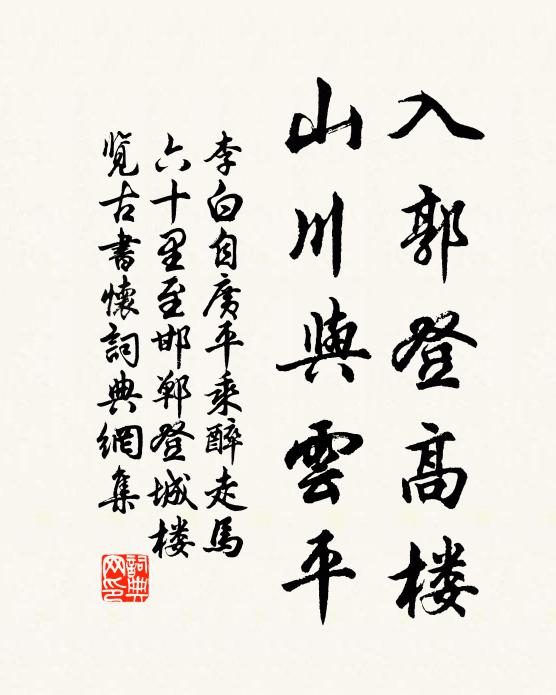 入郭登高楼
山川與雲平
李白自廣平乘醉走馬
六十里至邯鄲登城楼
覽古書懷詞典網集
詞典
网印